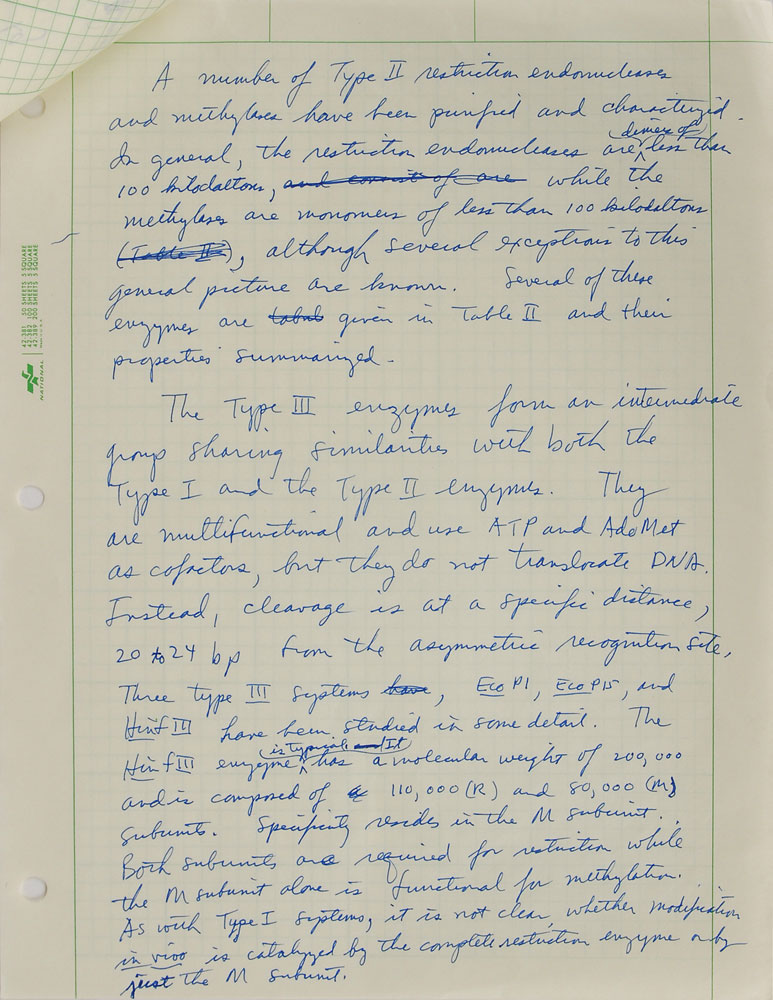 A number of Type II restriction endonucleases
and methylases have been purified and characterized.
In general, the restriction endonucleases are dimers of less than
100 kilodaltons, and consist of are while the
methylases are monomers of less than 100 kilodaltons
(Table II), although several exceptions to this
general picture are known. Several of these
enzymes are given in Table II and their
properties summarized.
The Type III enzymes form an intermediate
group sharing similarities with both the
Type I and the Type II enzymes. They
are multifunctional and use ATP and AdoMet
as cofactors, but they do not translocate DNA.
Instead, cleavage is at a specific distance,
20 to 24 bp from the asymmetric recognition site.
Three type III systems have, EcoP1, EcoP15, and
HinfIII have been studied in some detail. The
HinfIII enzyme is typical and It has a molecular weight of 200,000
and is composed of 110,000 (R) and 80,000 (M)
subunits. Specificity resides in the M subunit.
Both subunits are required for restriction while
the M subunit alone is functional for methylation.
As with Type I systems, it is not clear whether modification
in vivo is catalyzed by the complete restriction enzyme or by
just the M subunit.
42-381 50 SHEETS 5 SQUARE
42-382 100 SHEETS 5 SQUARE
42-389 200 SHEETS 5 SQUARE
NATIONAL